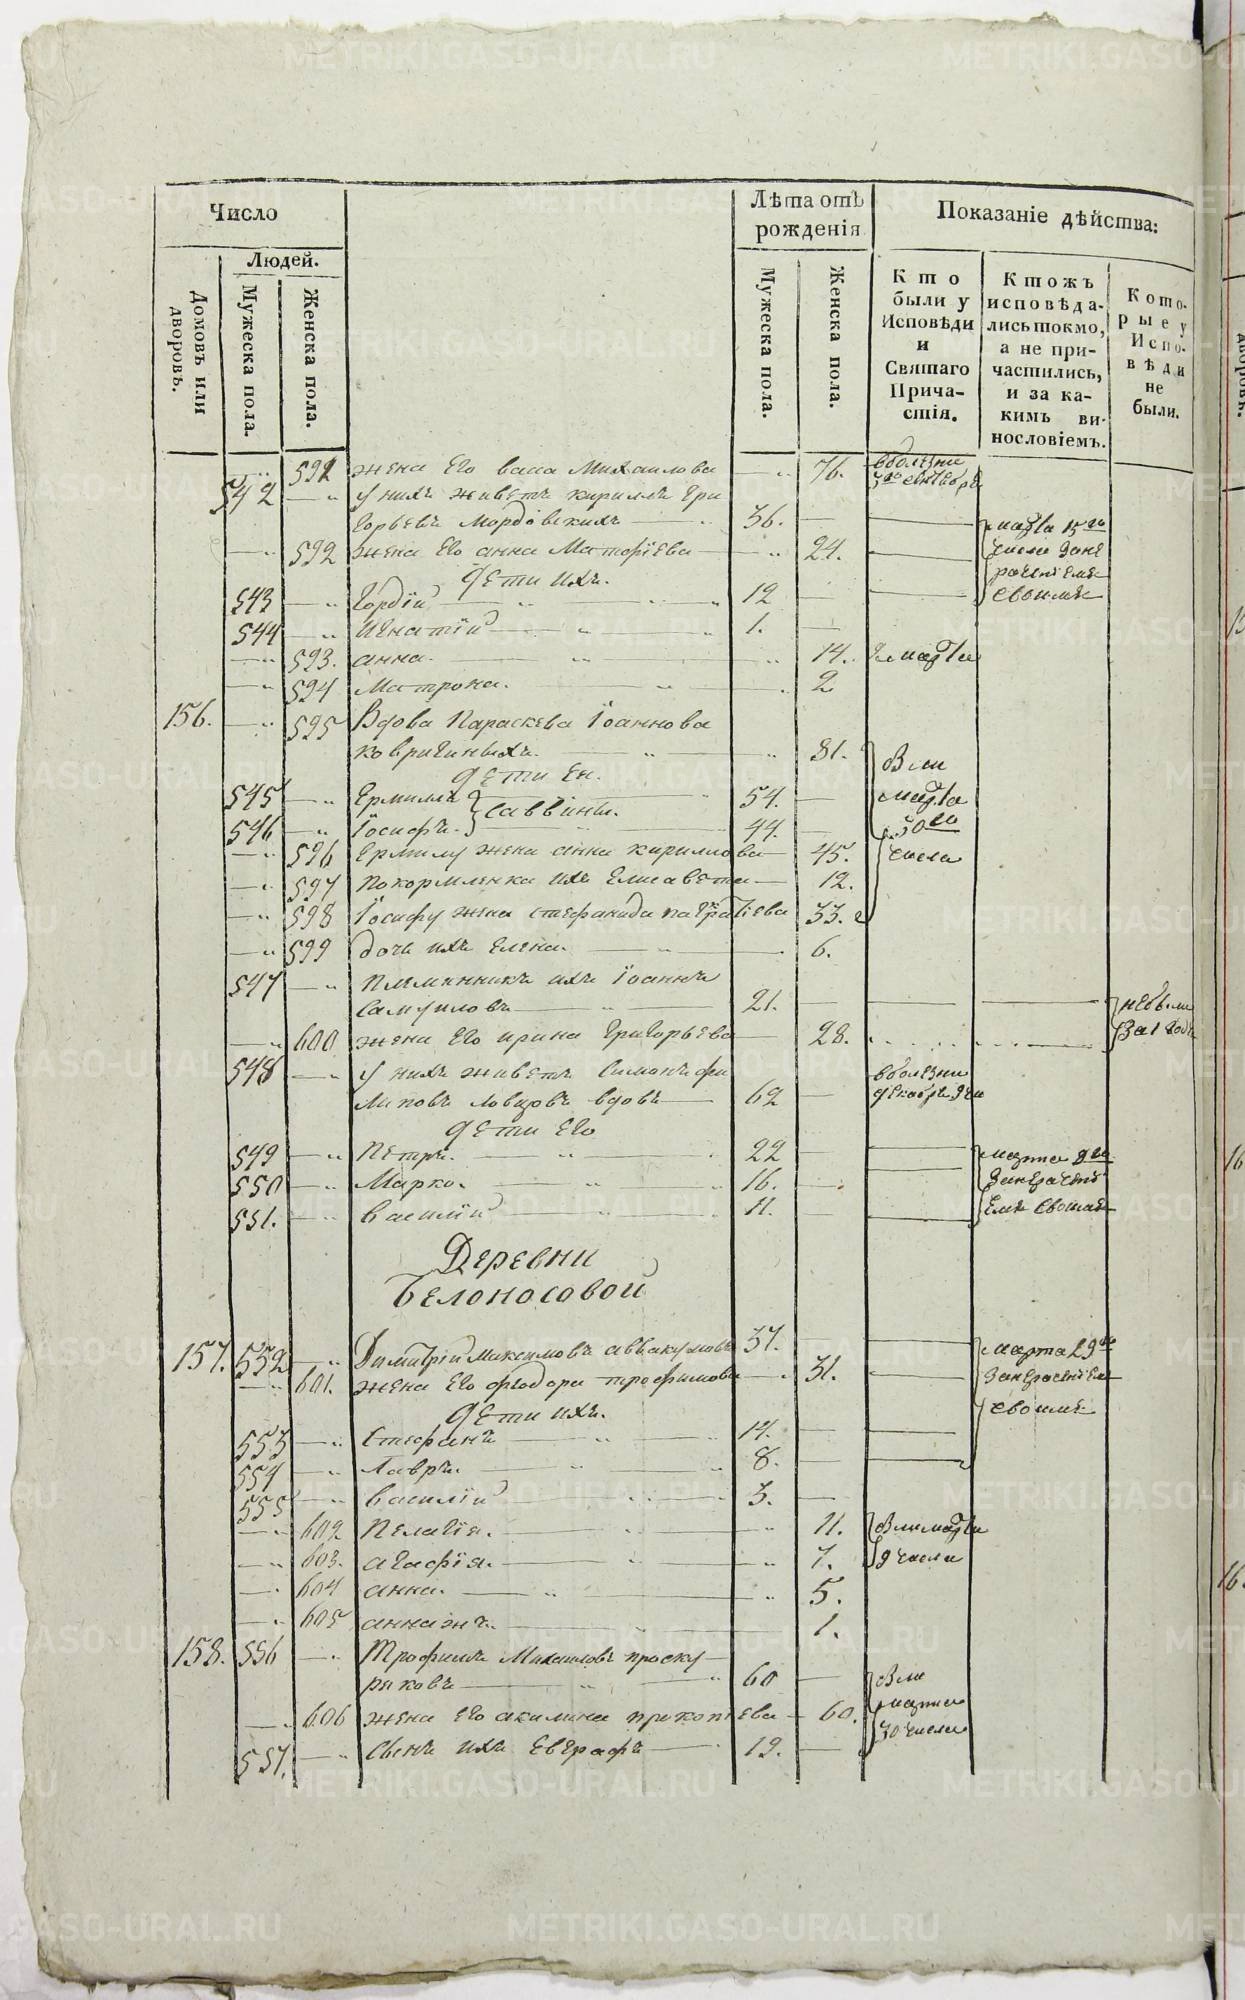 Число
Людей.
Домовъ или дворовъ.
Мужеска пола.
Женска пола.
Лѣта отъ рожденія
Мужеска пола.
Женска пола.
Показаніе дѣйства:
Кто были у Исповѣди и Святаго Причастія.
Ктожъ исповѣдались токмо, а не причастились, и за какимъ винословіемъ.
Которые у Исповѣди не были.
591 жена Его васа Михаилова 76. вболезни
542 у нихъ живетъ кириллъ Гри
горьевъ Мордовскихъ 36. марта 15го
592 жена Его анна Матфіева 24. числа зане
дѣти ихъ. рачені емъ
543 Гордій 12 своимъ
544 Игнатій 1.
593. анна. 14. марта
594 Матрона. 2
156. 595 Вдова Параскева Іоаннова
ковригиныхъ. 81.
дѣти Ея. Вми
545 Ермилъ 54. марта
Саввины.
546 Іосифъ. 44. 30го
596 Ермилу жена анна кириллова 45. числа
597 покормленка ихъ Елисавета 12.
598 Іосифу жена стефанида панкратіева 33.
599 дочь ихъ Елена. 6.
547 Племянникъ ихъ Іоаннъ
Самуиловъ 21. небыли
600 жена Его ирина Григорьева 28. За 1 годъ
548 у нихъ живетъ Симонъ фи
липовъ вдовъ 62 вболезни
дѣти Его
549 Петръ. 22 марта
550 Марко. 16.
551. василій 11. своимъ
Деревни
Белоносовой
157. 552 Димитрій Максимовъ аввакумовъ 37. марта 29го
601. жена Его феодора трофимова 31.
дѣти ихъ. своимъ
553 Стефанъ 14.
554 Лавръ. 8.
555 василій 3.
602 Пелагія. 11. Вми марта
603. агафія. 7. 9 числа
604 анна. 5.
605 анна жъ. 1.
158. 556 Трофимъ Михаиловъ проску
ряковъ 60 Вми
606 жена Его акилина прокопіева 60. марта
557. Сынъ ихъ Евграфъ 19. 30 числа
METRIKI.GASO-URAL.RU